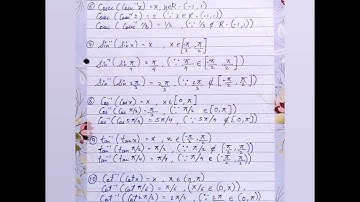 ⑥ Cosec (Cosec⁻¹x) = x, x∈R - (-1, 1)
Cosec (Cosec⁻¹2) = 2 (∵ 2 ∈ R - (-1, 1))
Cosec (Cosec⁻¹ 1/2) = 1/2 (∵ 1/2 ∉ R - (-1, 1))
⑦ Sin⁻¹ (Sin x) = x , x∈[-π/2, π/2]
Sin⁻¹ (Sin π/4) = π/4 (∵ π/4 ∈ [-π/2, π/2])
Sin⁻¹ (Sin 2π/3) = 2π/3 (∵ 2π/3 ∉ [-π/2, π/2])
⑧ Cos⁻¹ (Cos x) = x , x∈[0, π]
Cos⁻¹ (Cos π/2) = π/2 (∵ π/2 ∈ [0, π])
Cos⁻¹ (Cos 5π/4) = 5π/4 (∵ 5π/4 ∉ [0, π])
⑨ tan⁻¹ (tan x) = x , x∈(-π/2, π/2)
tan⁻¹ (tan π/2) = π/2 (∵ π/2 ∉ (-π/2, π/2))
tan⁻¹ (tan π/4) = π/4 (∵ π/4 ∈ (-π/2, π/2))
⑩ Cot⁻¹ (Cot x) = x, x∈(0, π)
Cot⁻¹ (Cot π/2) = π/2, (π/2 ∈ (0, π))
Cot⁻¹ (Cot 2π/3) = 2π/3, (∵